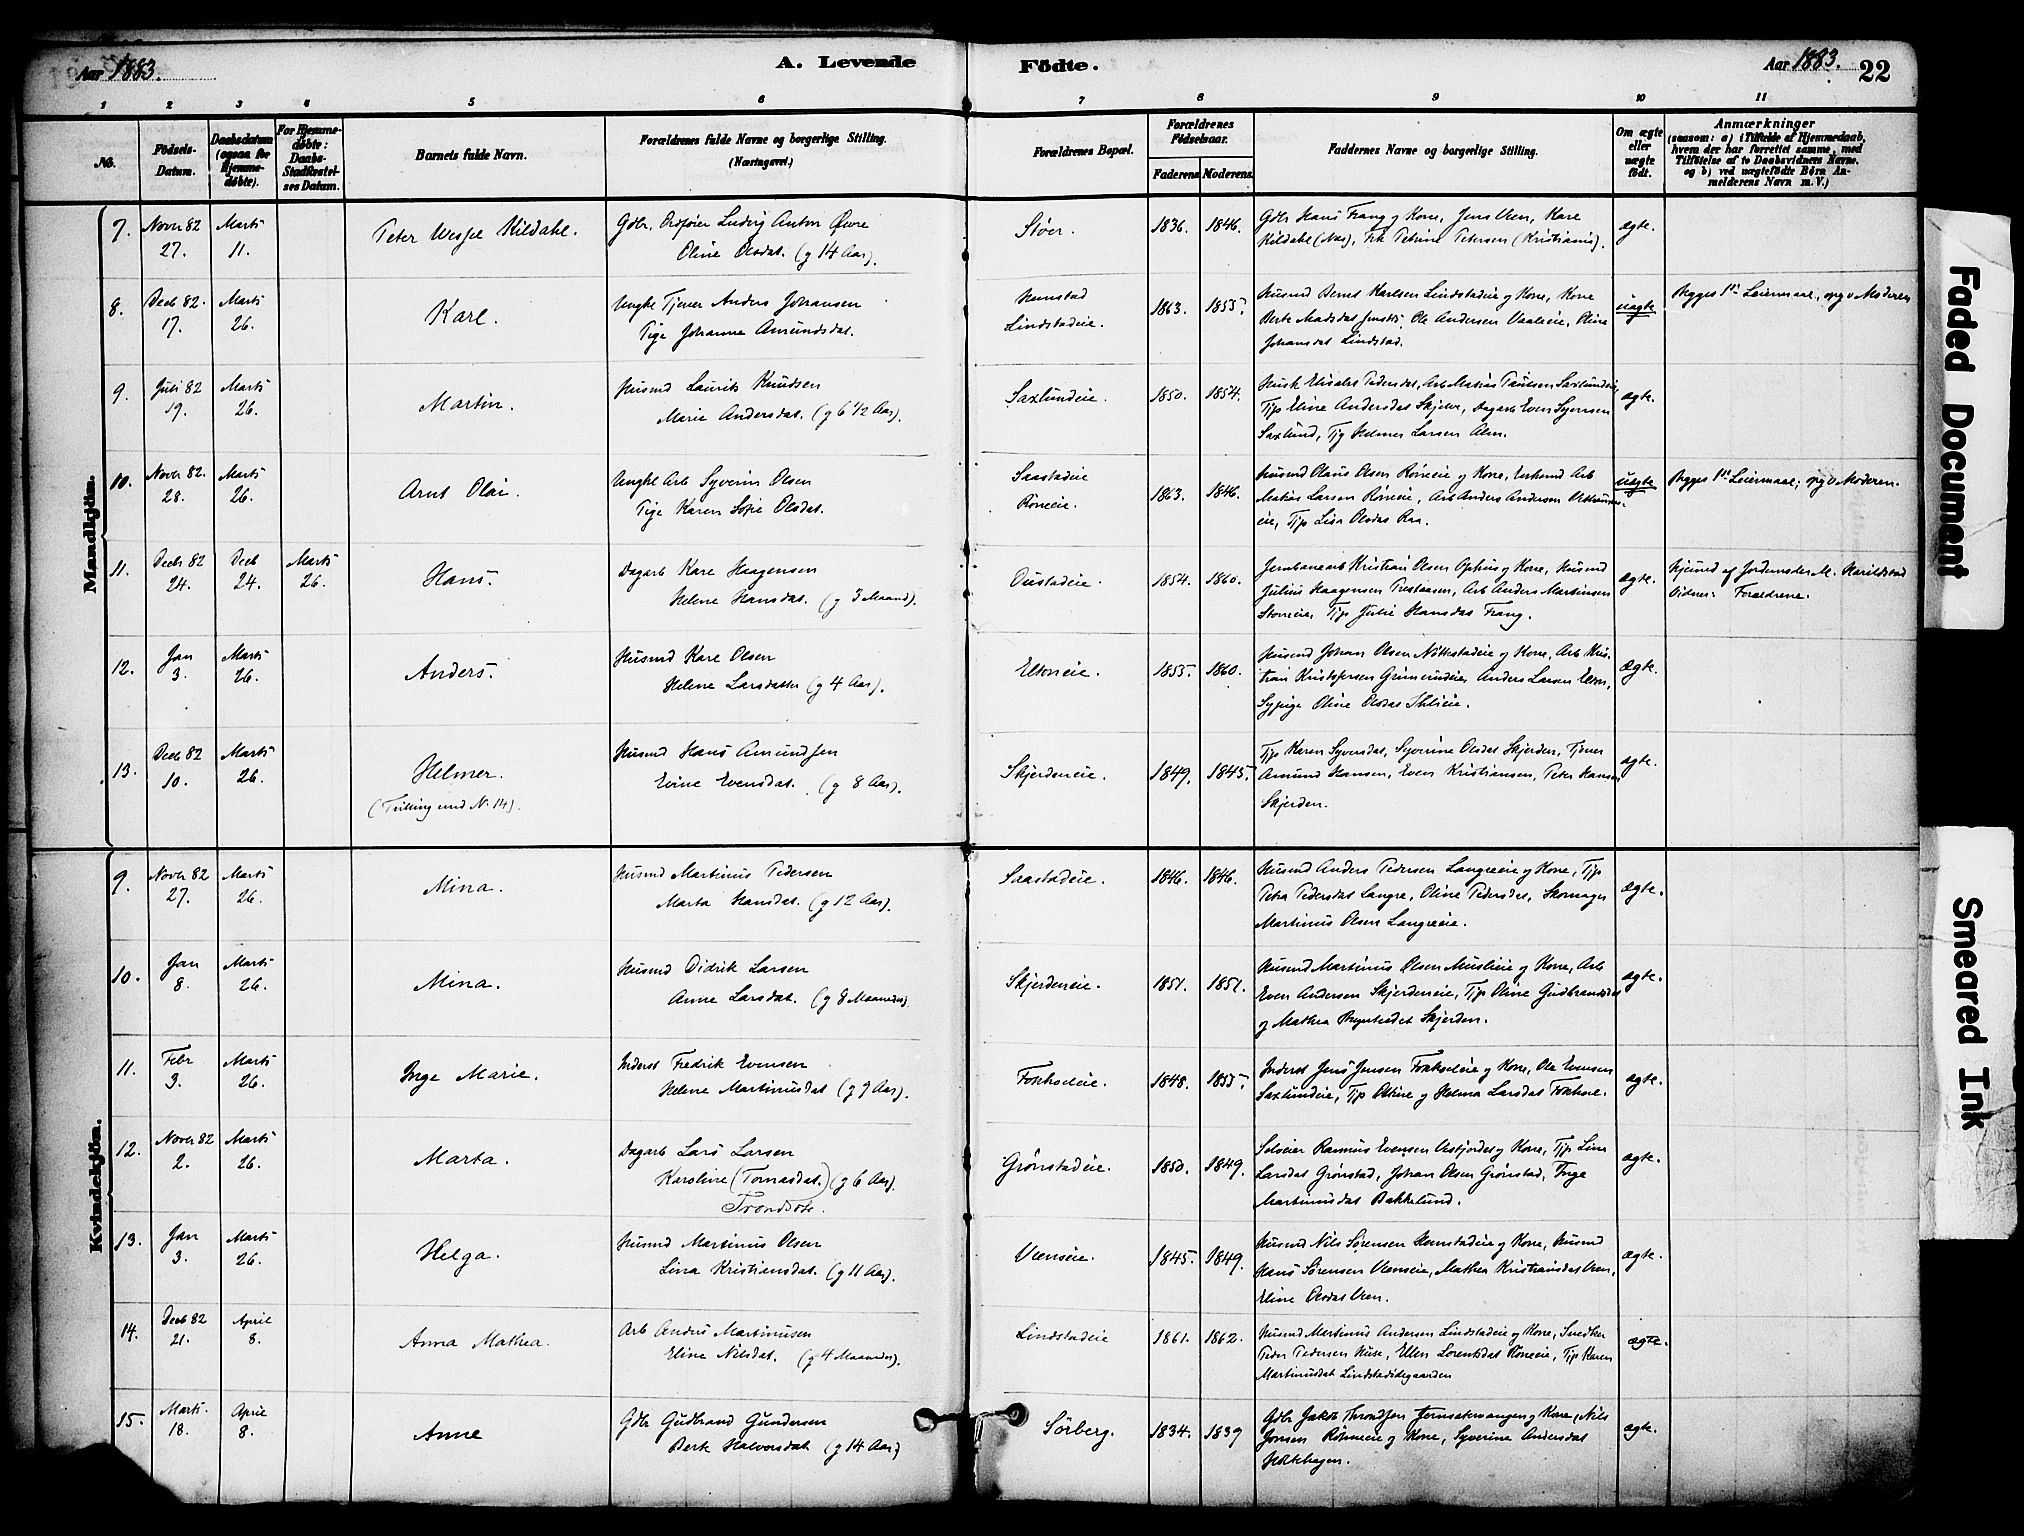 Aar 1883.
A. Levende
Födte.
Aar 1883.
22
1 2 3 4 5 6 7 8 9 10 11
No.
Födsels-Datum.
Daabsdatum (ogsaa for Hjemmedøbte).
For Hjemmedøbte: Daabs-Stadfæstelses Datum.
Barnets fulde Navn.
Forældrenes fulde Navne og borgerlige Stilling. (Næringsvei.)
Forældrenes Bopæl.
Forældrenes Födselsaar.
Faderens Moderens
Faddernes Navne og borgerlige Stilling.
Om ægte eller uægte født.
Anmærkninger
(saasom: a) i Tilfælde af Hjemmedaab, hvem der har forrettet samme, med Tilföielse af to Daabsvidners Navne, og b) ved uægtefödte Börn Anmelderens Navn m. V.)
Mandkjön.
7. Novr 82 27. Marts 11. Peter Wessel Kildahl. Gdbr. Ludvig Anton Øvre
Oline Olsdat. (g 14 Aar).
Støer. 1836. 1846. Gdbr Hans Frang og Kone, Jens Veen, Kare
Kildahl (Næs), Frk Petrine Petersen (Kristiania). ægte.
8. Decb 82. 17. Marts 26. Karl. Ungkl Tjener Anders Johansen
Pige Johanne Amundsdat.
Hemstad
Lindstadeie. 1863. 1855. Husmd Bernt Karlsen Lindstadeie og Kone, Kone
Berte Madsdat, Ole Andersen Vaaleie, Oline
Johansdat Lindstad. uægte Begges 1ste Leiermaal, opg v Moderen
9. Juli 82 19. Marts 26. Martin. Husmd Laurits Knudsen
Marie Andersdat. (g 6 1/2 Aar).
Saxlundeie. 1850. 1854. Pedersdat, Arb Matias Paulsen Saxlundeie,
Tjp Eline Andersdat Skjelve, Dagarb Even Syversen
Saxlund, Tjg Helmer Larsen Alm. ægte.
10. Novr 82. 28. Marts 26. Arnt Olai. Ungkl Arb Syverin Olsen
Pige Karen Sofie Olsdat.
Saastadeie
Röneie. 1863. 1846. Husmd Olaus Olsen Röneie og Kone, Arb
Matias Larsen Röneie, Arb Anders Andersen
eie, Tjp Lisa Olsdat Raa. uægte Begges 1ste Leiermaal; opg v Moderen.
11. Decb 82 24. Decb 24. Marts 26. Hans. Dagarb Kare Haagensen
Helene Hansdat. (g 3 Maand).
Oustadeie. 1854. 1860. Jernbanearb Kristian Olsen Ophus og Kone, Husmd
Julius Haagensen, Arb Anders Martinsen
Stoneie, Tjp Julie Hansdat Frang. ægte. Hjemmd af Jordemoder M. Harildstad
Vidner: Forældrene.
12. Jan 3. Marts 26. Anders. Husmd Kare Olsen
Helene Larsdatter (g 4 Aar).
Eltoneie. 1855. 1860. Husmd Johan Olsen Nöttestadeie og Kone, Arb Kris-
tian Kristofersen Grimerudeie, Anders Larsen Elton,
Sypige Oline Olsdat Ihleie. ægte.
13. Decb 82 10. Marts 26. Helmer.
(Tvilling med N. 14). Husmd Hans Amundsen
Eline Evensdat. (g 8 Aar).
Skjerdeneie. 1849. 1845. Tjp Karen Syversdat, Syverine Olsdat Skjerden, Tjener
Amund Hansen, Even Kristiansen, Peter Hansen
Skjerden. ægte.
Kvindekjön.
9. Novr 82 27. Marts 26. Mina. Husmd Martinus Pedersen
Marta Hansdat. (g 12 Aar).
Saastadeie. 1846. 1846. Husmd Anders Pedersen Langreeie og Kone, Tjp
Petra Pedersdat Langre, Oline Pedersdat, Skomager
Martinus Olsen Langreeie. ægte.
10. Jan 8. Marts 26. Mina. Husmd Didrik Larsen
Anne Larsdat. (g 8 Maaneder)
Skjerdeneie. 1851. 1851. Husmd Martinus Olsen Muslieie og Kone, Arb
Even Andersen Skjerdeneie, Tjp Oline Gudbrandsdat
og Mathea Skjerden. ægte.
11. Febr 3. Marts 26. Inge Marie. Inderst Fredrik Evensen
Helene Martinusdat (g 7 Aar).
Fokholeie. 1848. 1855. Inderst Jens Jensen Fokholeie og Kone, Ole Evensen
Saxlundeie, Tjp Oline og Helma Larsdat Fokhol. ægte.
12. Novr 82 2. Marts 26. Marta. Dagarb Lars Larsen
Karoline (Tomasdat.) (g 6 Aar).
Trondsdtr.
Grönstadeie. 1850. 1849. Selveier Rasmus Evensen og Kone, Tjp Lina
Larsdat Grönstad, Johan Olsen Grönstad, Inge
Martinusdat Bakkelund. ægte.
13. Jan 3. Marts 26. Helga. Husmd Martinus Olsen
Lina Kristiansdat. (g 11 Aar).
Veenseie. 1845. 1849. Husmd Nils Sørensen Hemstadeie og Kone, Husmd
Hans Sørensen Veenseie, Mathea Kristiansdat Veen,
Eline Olsdat Veen. ægte.
14. Decb 82 21. April 8. Anna Mathea. Arb Anders Martinusen
Eline Nilsdat. (g 4 Maaneder).
Lindstadeie 1861. 1862. Husmd Martinus Andersen Lindstadeie og Kone, Snedker
Peder Pedersen Huse, Ellen Lorentsdat Röneeie, Tjp Karen
Martinusdat Lindstadødegaarden ægte.
15. Marts 18. April 8. Anne Gdbr Gudbrand Gundersen
Berte Halvorsdat (g 14 Aar)
Sörberg. 1834. 1839 Gdbr Jakob Throndsen og Kone, Nils
Jonsen Röhneeie og Kone, Syverine Andersdat
ægte.
Faded Document
Smeared Ink